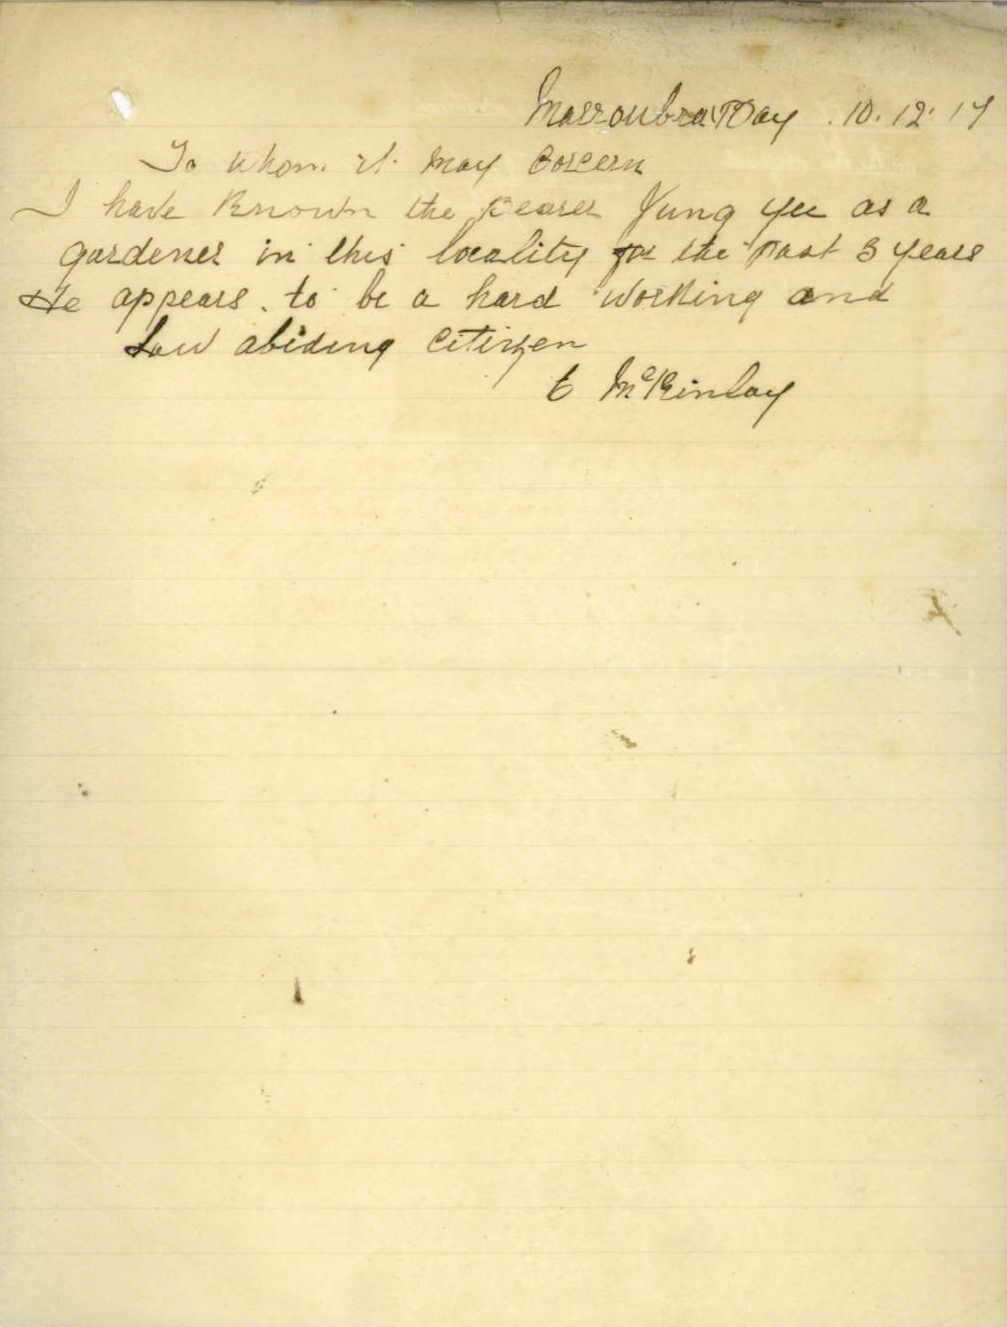 Marroubra Bay . 10.12.17
To whom it may Concern
I have Known the Bearer Yung Yee as a
gardener in this locality for the Past 3 years
He appears. to be a hard working and
Law abiding Citizen
E McKinlay